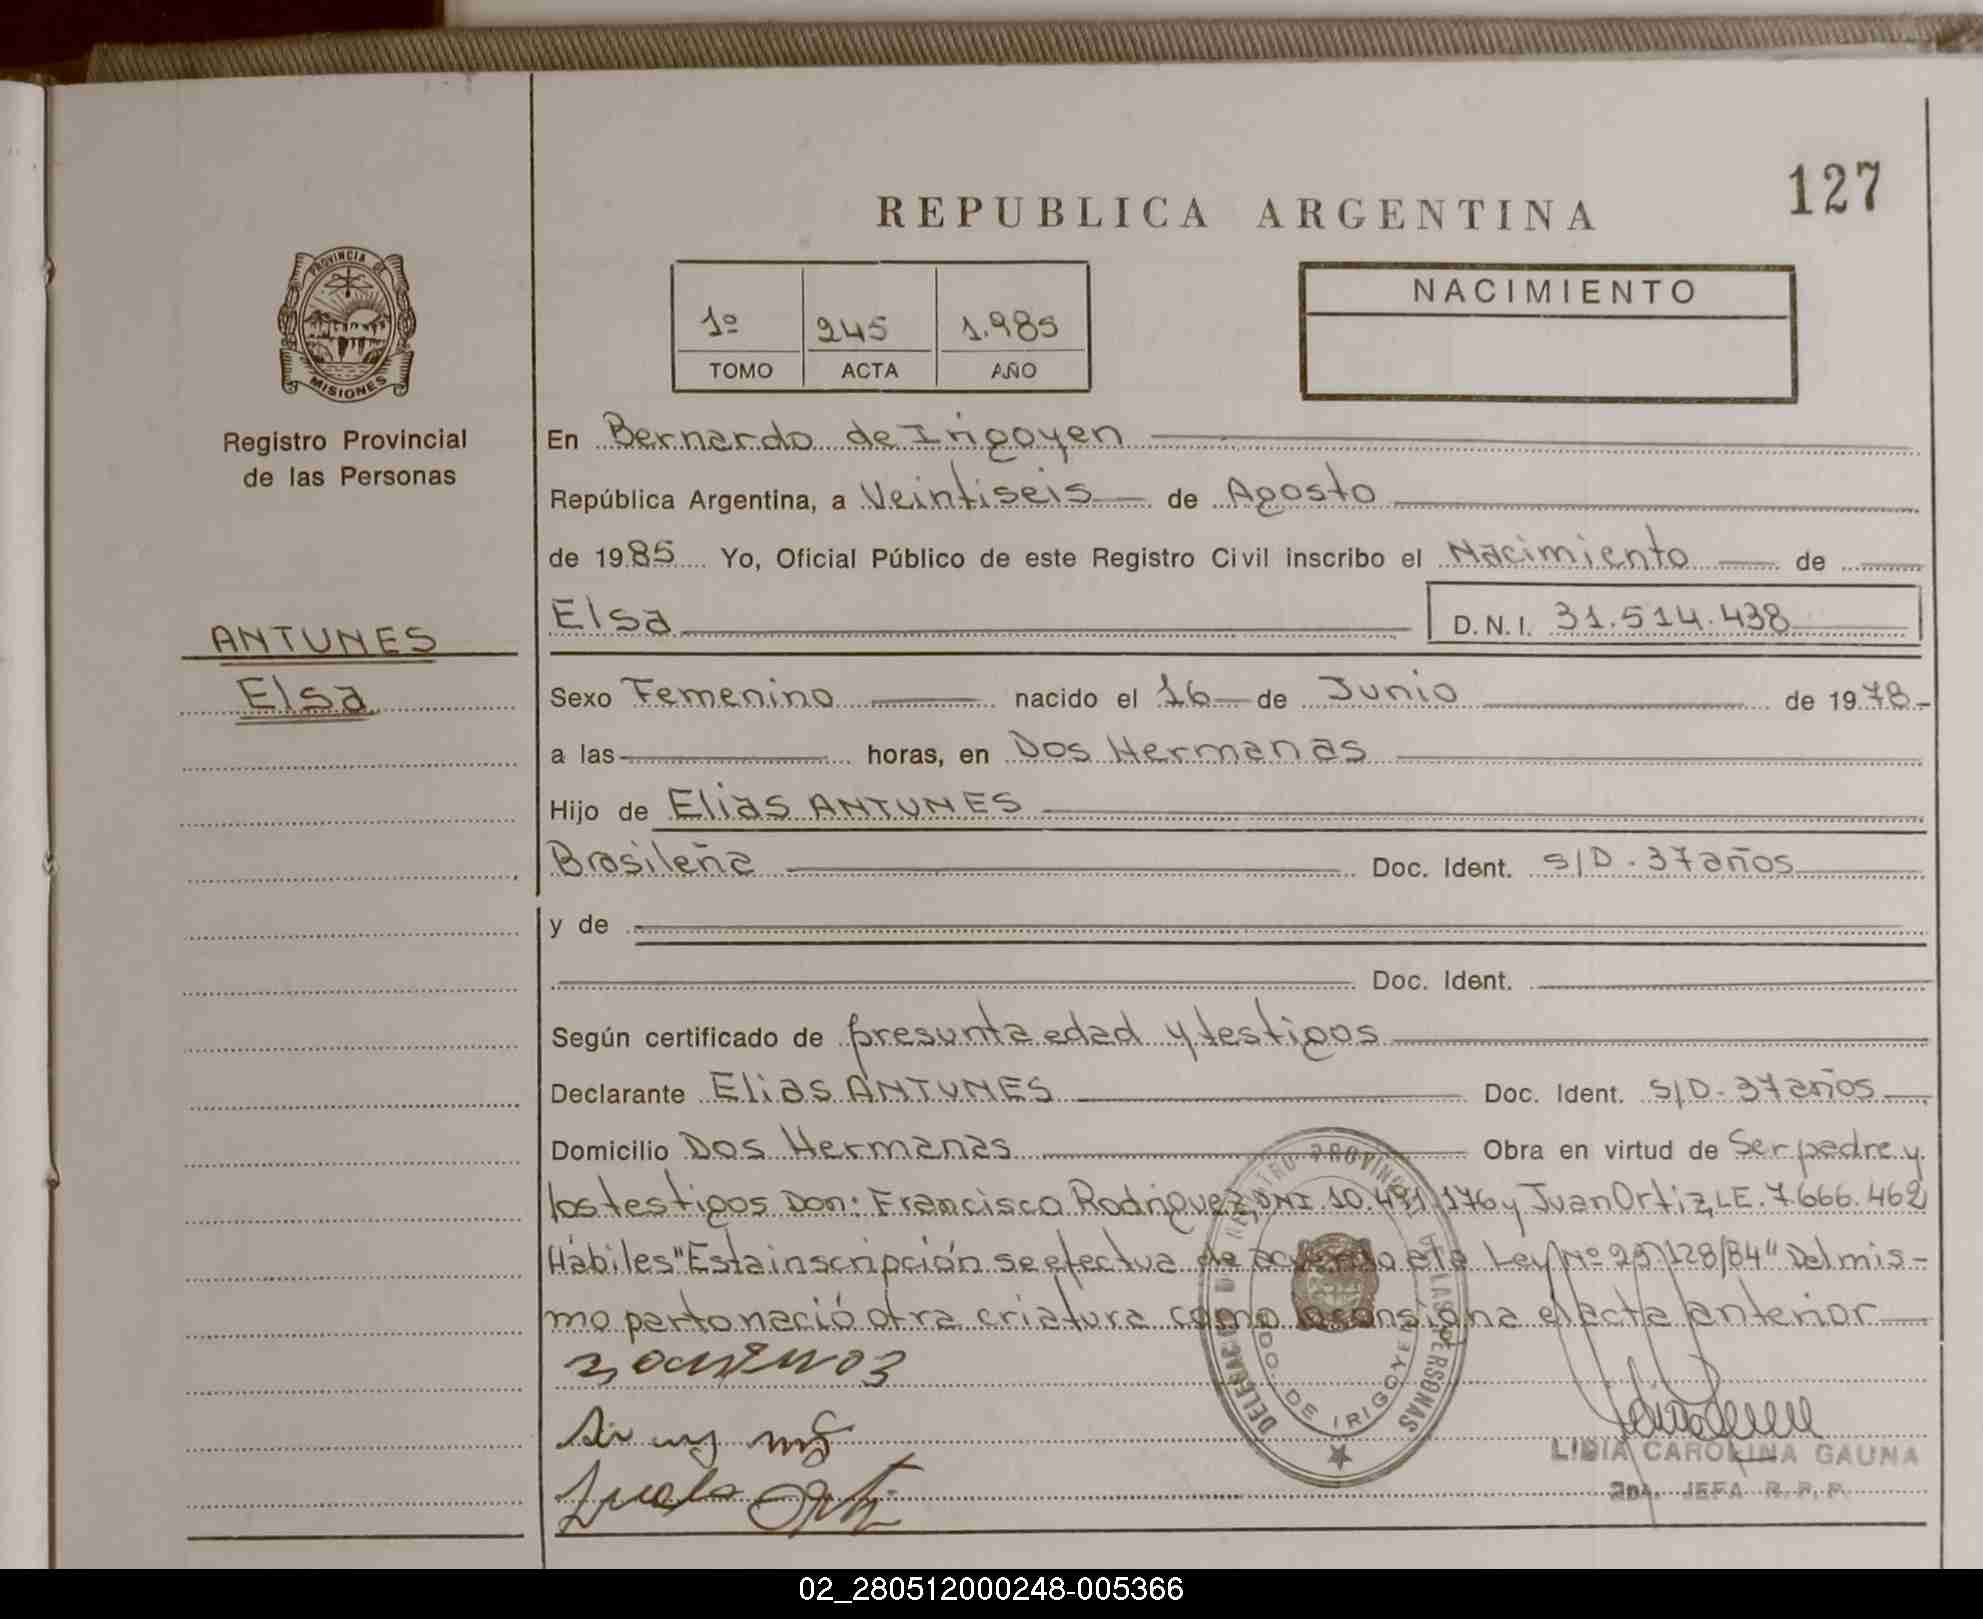 127
REPUBLICA ARGENTINA
PROVINCIA DE
MISIONES
Registro Provincial
de las Personas
1º 245 1.985
TOMO ACTA AÑO
NACIMIENTO
En Bernardo de Irigoyen
República Argentina, a Veintiseis de Agosto
de 1985 Yo, Oficial Público de este Registro Civil inscribo el Nacimiento de
Elsa D.N.I. 31.514.438
ANTUNES
Elsa
Sexo Femenino nacido el 16 de Junio de 1978
a las horas, en Dos Hermanas
Hijo de Elias ANTUNES
Brasileña Doc. Ident. S/D. 37 años
y de
Doc. Ident.
Según certificado de presunta edad y testigos
Declarante Elias ANTUNES Doc. Ident. S/D. 37 años
Domicilio Dos Hermanas Obra en virtud de Ser padre y
los testigos Don: Francisco Rodriguez, DNI. 10.491.176 y Juan Ortiz, LE. 7.666.462
Hábiles "Esta inscripción se efectua de acuerdo a la Ley Nº 23.128/84" Del mis-
mo parto nació otra criatura como consigna el acta anterior
DELEGACION REGISTRO PROVINCIAL DE LAS PERSONAS
BDO. DE IRIGOYEN
LIDIA CAROLINA GAUNA
2da. JEFA R.P.P.
02_280512000248-005366